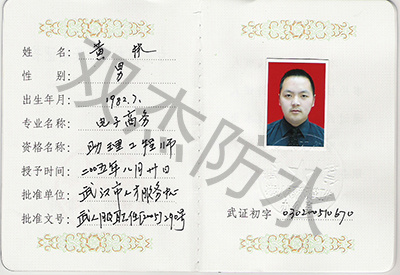 姓名：黄
性别：男
出生年月：1982.7.
专业名称：电子商务
资格名称：助理工程师
授予时间：二00五年八月廿日
批准单位：武汉市人才服务中心
批准文号：武人职[2005]290号
武证初字 030200510670
双杰防水